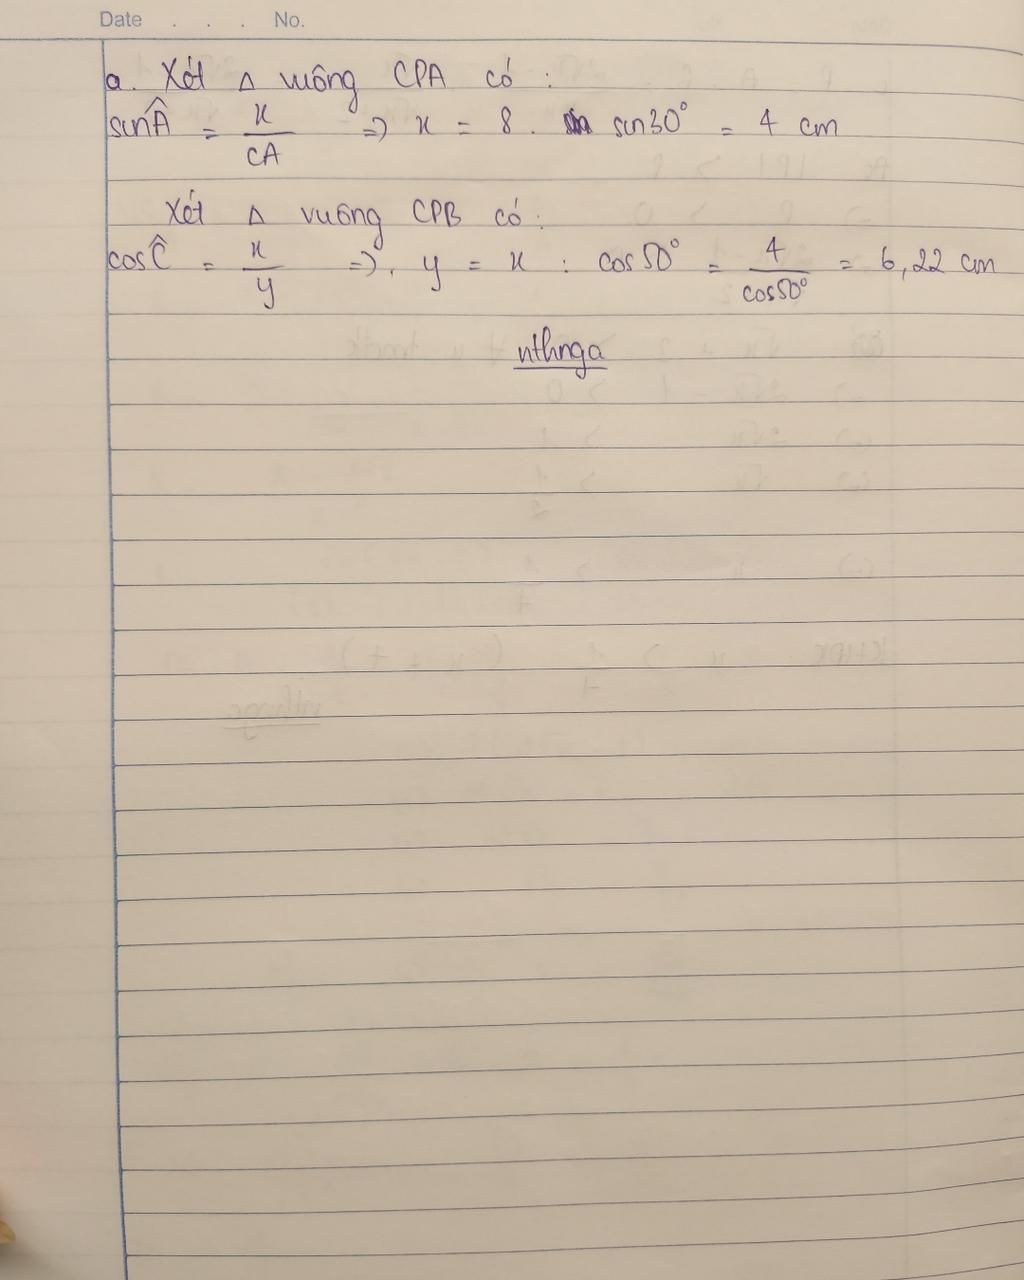 Date . . . No.
a. Xét Δ vuông CPA có :
sin Â = x/CA => x = 8 . sin30° = 4 cm
Xét Δ vuông CPB có :
cos Ĉ = x/y => . y = x : cos50° = 4/cos50° = 6,22 cm
nthnga